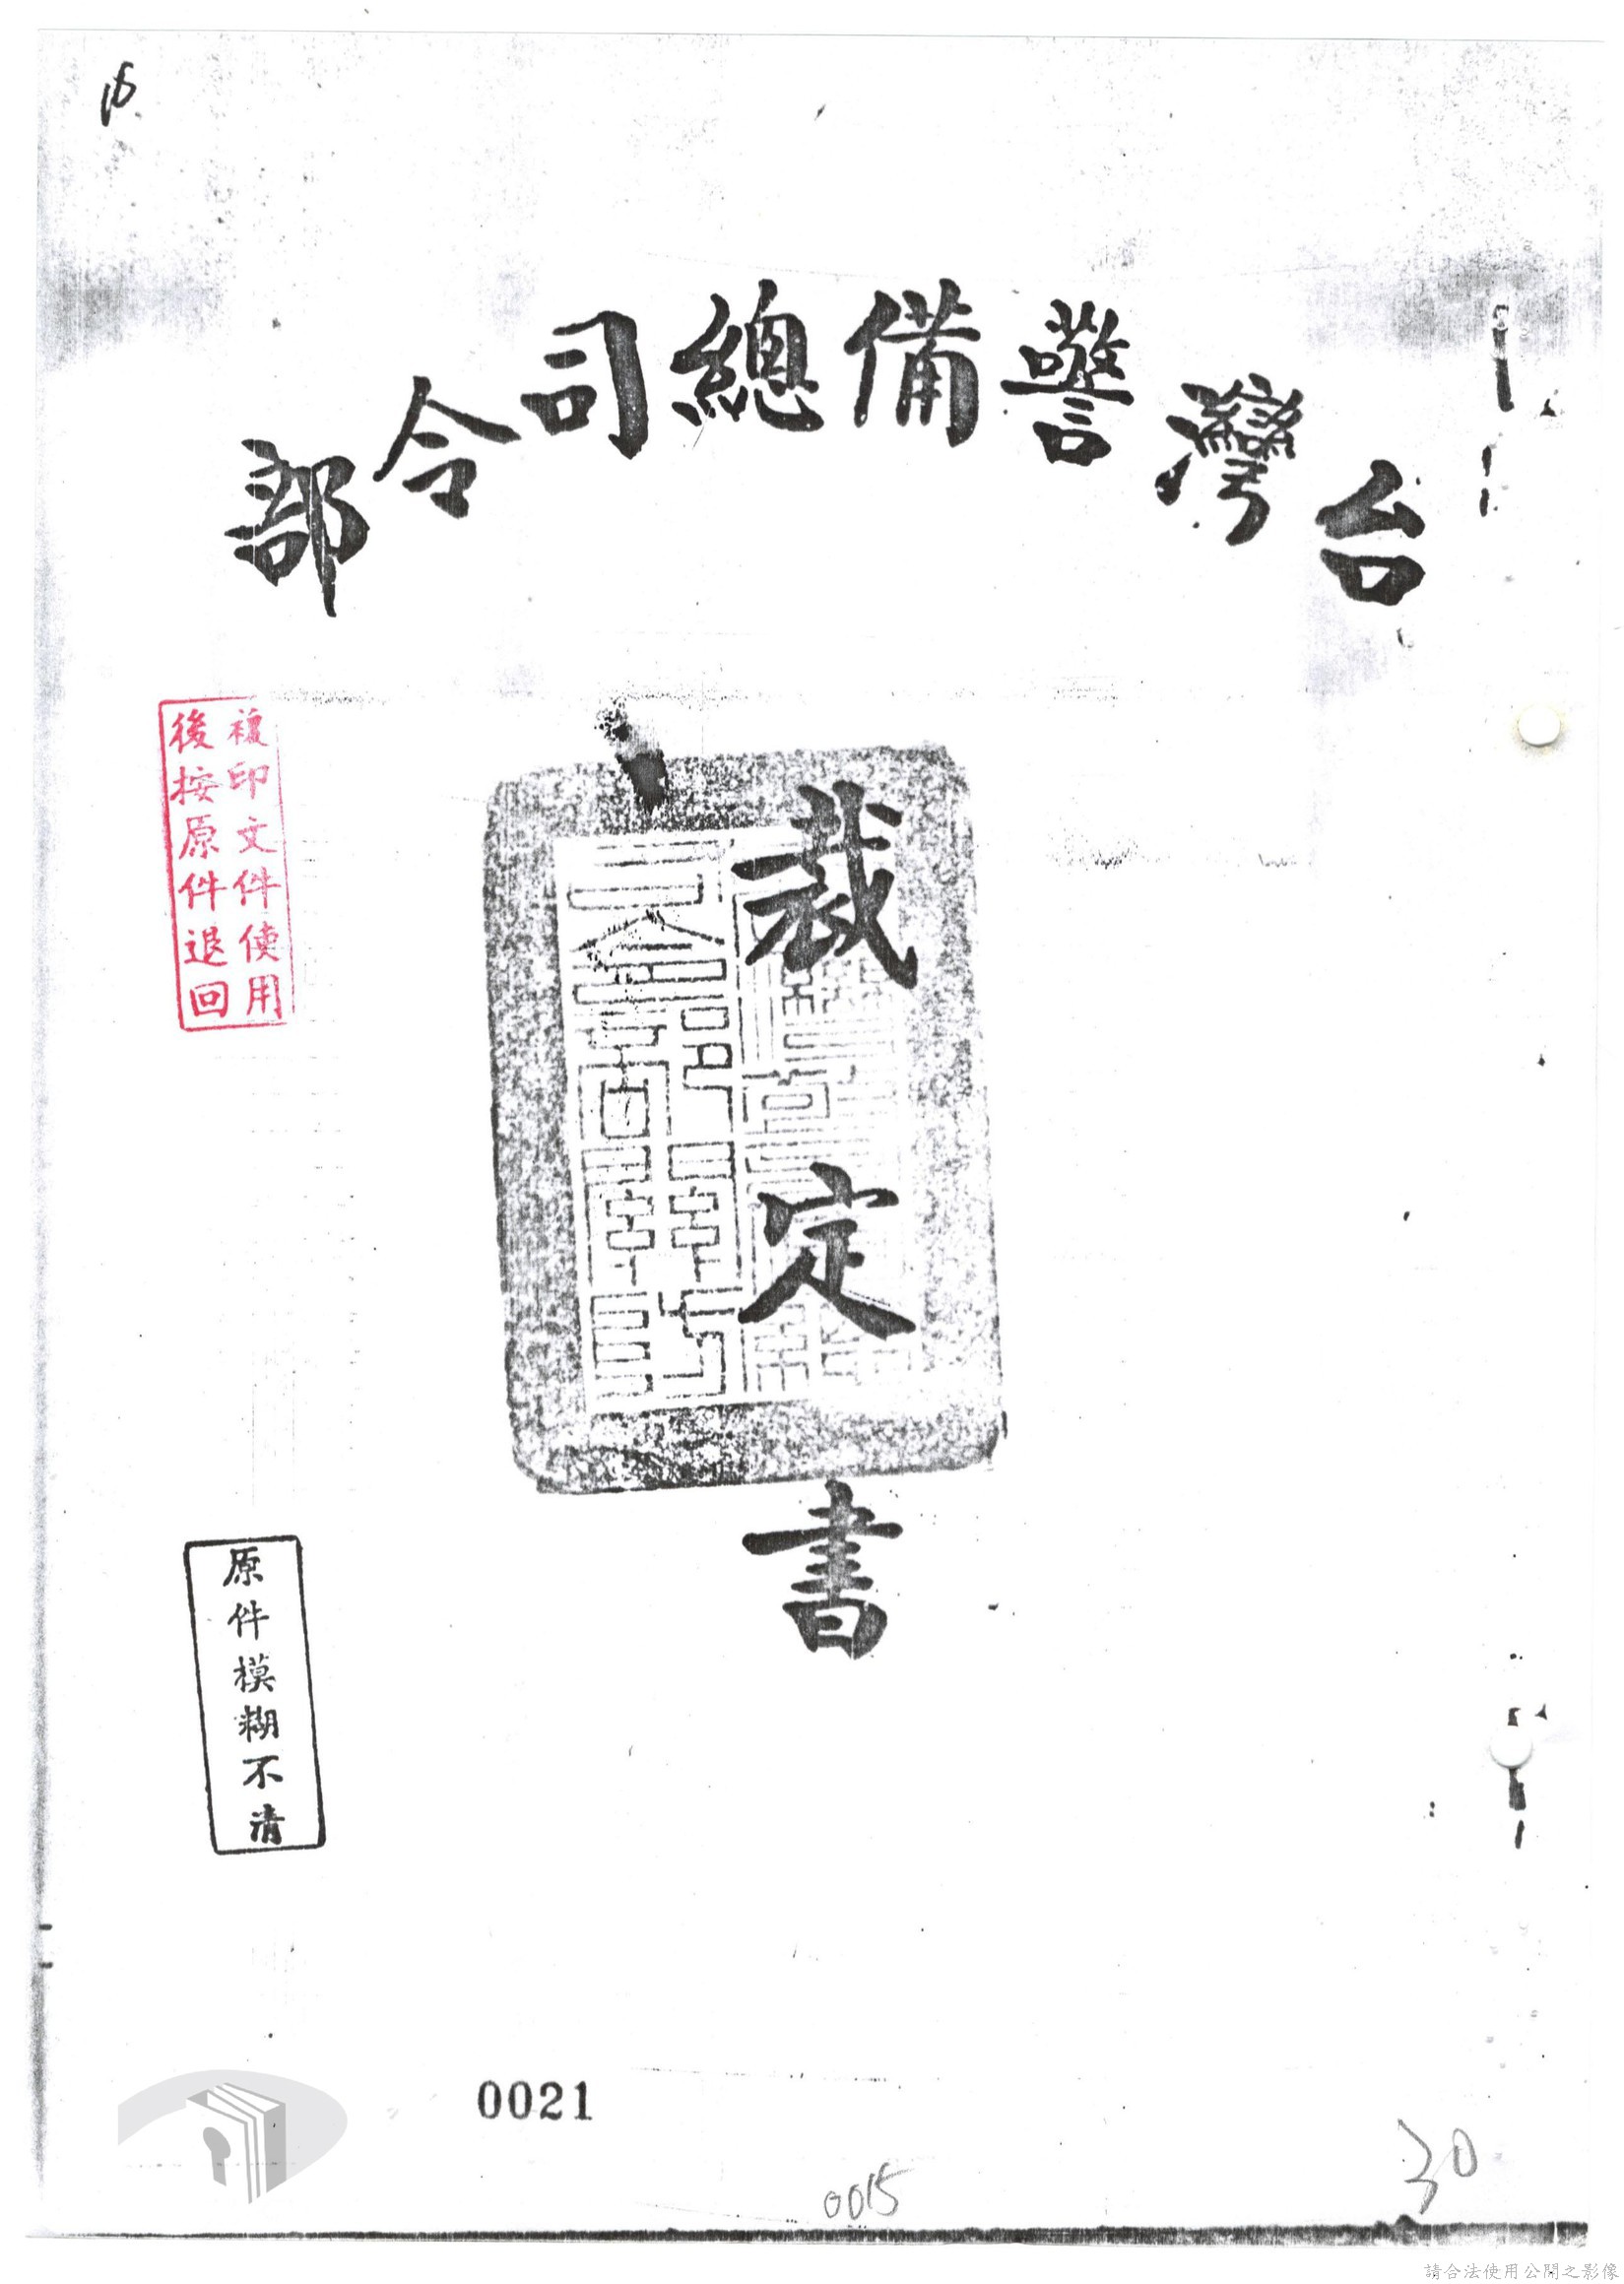 台灣警備總司令部
裁定書
複印文件使用
後按原件退回
原件模糊不清
0021
0015
30
請合法使用公開之影像